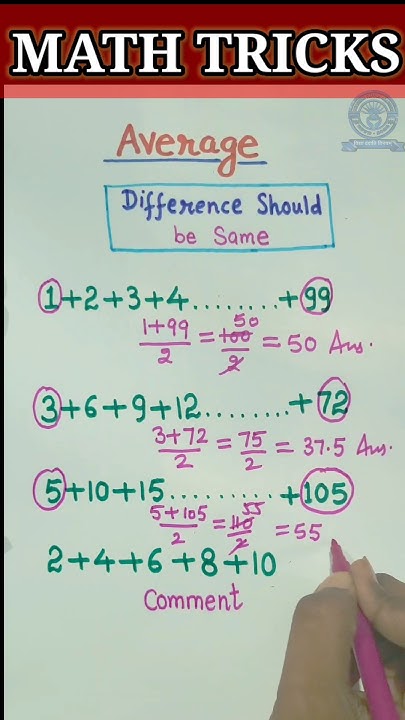 MATH TRICKS
Average
Difference Should
be Same
1+2+3+4........+99
1+99/2 = 100/2 50 = 50 Ans.
3+6+9+12........+72
3+72/2 = 75/2 = 37.5 Ans.
5+10+15..........+105
5+105/2 = 110/2 55 = 55
2+4+6+8+10
Comment